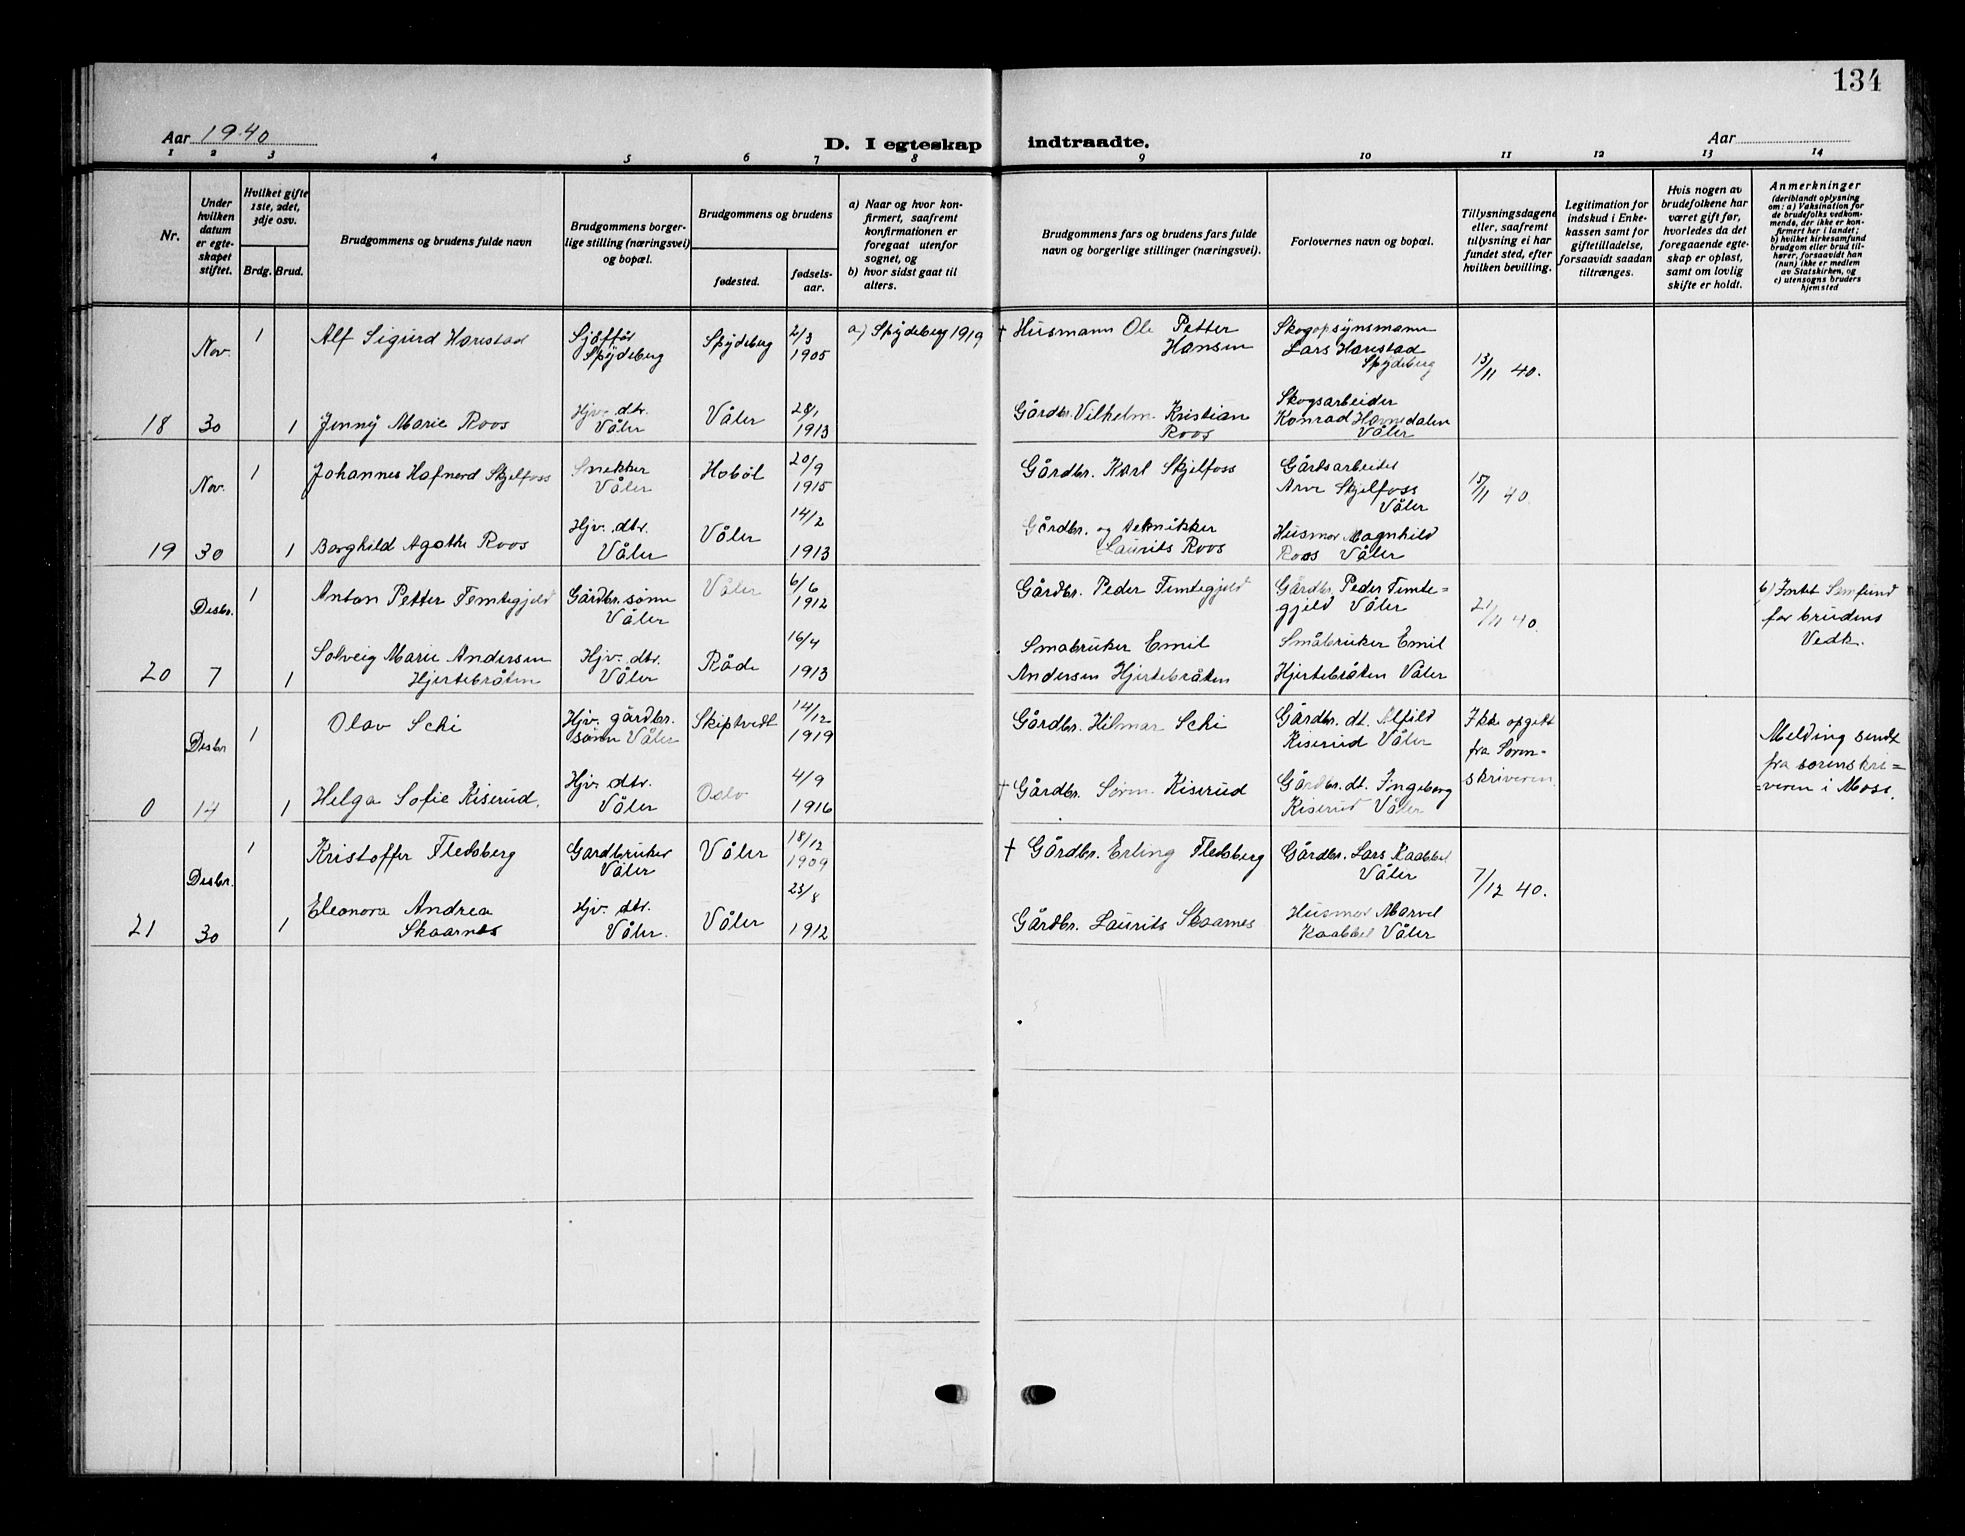 134
Aar 1940
D. I egteskap indtraadte.
Aar
1 2 3 4 5 6 7 8 9 10 11 12 13 14
Nr.
Under hvilken datum er egteskapet stiftet.
Hvilket gifte 1ste, 2det, 3dje osv.
Brdg. Brud.
Brudgommens og brudens fulde navn
Brudgommens borgerlige stilling (næringsvei) og bopæl.
Brudgommens og brudens
fødested.
fødselsaar.
a) Naar og hvor konfirmert, saafremt konfirmationen er foregaat utenfor sognet, og
b) hvor sidst gaat til alters.
Brudgommens fars og brudens fars fulde navn og borgerlige stillinger (næringsvei).
Forlovernes navn og bopæl.
Tillysningsdagene eller, saafremt tillysning ei har fundet sted, efter hvilken bevilling.
Legitimation for indskud i Enkekassen samt for giftetilladelse, forsaavidt saadan tiltrænges.
Hvis nogen av brudefolkene har været gift før, hvorledes da det foregaaende egteskap er opløst, samt om lovlig skifte er holdt.
Anmerkninger
(deriblandt oplysning om: a) Vaksination for de brudefolks vedkommende, der ikke er konfirmert her i landet;
b) hvilket kirkesamfund brudgom eller brud tilhører, forsaavidt han (hun) ikke er medlem av Statskirken, og
c) utensogns bruders hjemsted
Nov. 1 Alf Sigurd Harestad Sjåffør Spydeberg Spydeberg 2/3 1905 a) Spydeberg 1919 † Husmann Ole Petter Hansen Skogopsynsmann Lars Harestad Spydeberg 13/11 40.
18 30 1 Jenny Marie Roos Hjv. dtr. Våler Våler 28/1 1913 Gårdbr. Vilhelm Kristian Roos Skogsarbeider Konrad Havnedalen Våler
Nov. 1 Johannes Hafnord Skjelfoss Snekker Våler Hobøl 20/9 1915 Gårdbr. Karl Skjelfoss Gårdsarbeider Arve Skjelfoss Våler 15/11 40
19 30 1 Borghild Agathe Roos Hjv. dtr. Våler Våler 14/2 1913 Gårdbr. og tekniker Laurits Roos Husmor Magnhild Roos Våler
Desbr. 1 Anton Petter Femtegjeld Gårdbr. sønn Våler Våler 6/6 1912 Gårdbr. Peder Femtegjeld Gårdbr. Peder Femte=gjeld Våler 21/11 40. b) Intet Samfund for brudens Vedk.
20 7 1 Solveig Marie Andersen Hjertebråten Hjv. dtr. Våler Råde 16/4 1913 Småbruker Emil Andersen Hjertebråten Småbruker Emil Hjertebråten Våler
Desbr 1 Olav Schi Hjv. gårdbr. sønn Våler Skiptvedt 14/12 1919 Gårdbr. Hilmar Schi Gårdbr. dt. Alfild Kiserud Våler Ikke opgitt fra Soren-skriveren Melding sendt fra sorenskri=veren i Moss.
0 14 1 Helga Sofie Kiserud. Hjv. dtr. Våler Oslo 4/9 1916 † Gårdbr. Søren Kiserud Gårdbr. dt. Ingeborg Kiserud Våler
Desbr. 1 Kristoffer Flesberg Gardbruker Våler Våler 18/12 1909 † Gårdbr. Erling Flesberg Gårdbr. Lars Kaabbel Våler 7/12 40.
21 30 1 Eleonora Andrea Skaarnes Hjv. dtr. Våler. Våler 23/8 1912 Gårdbr. Laurits Skaarnes Husmor Marvel Kaabbel Våler